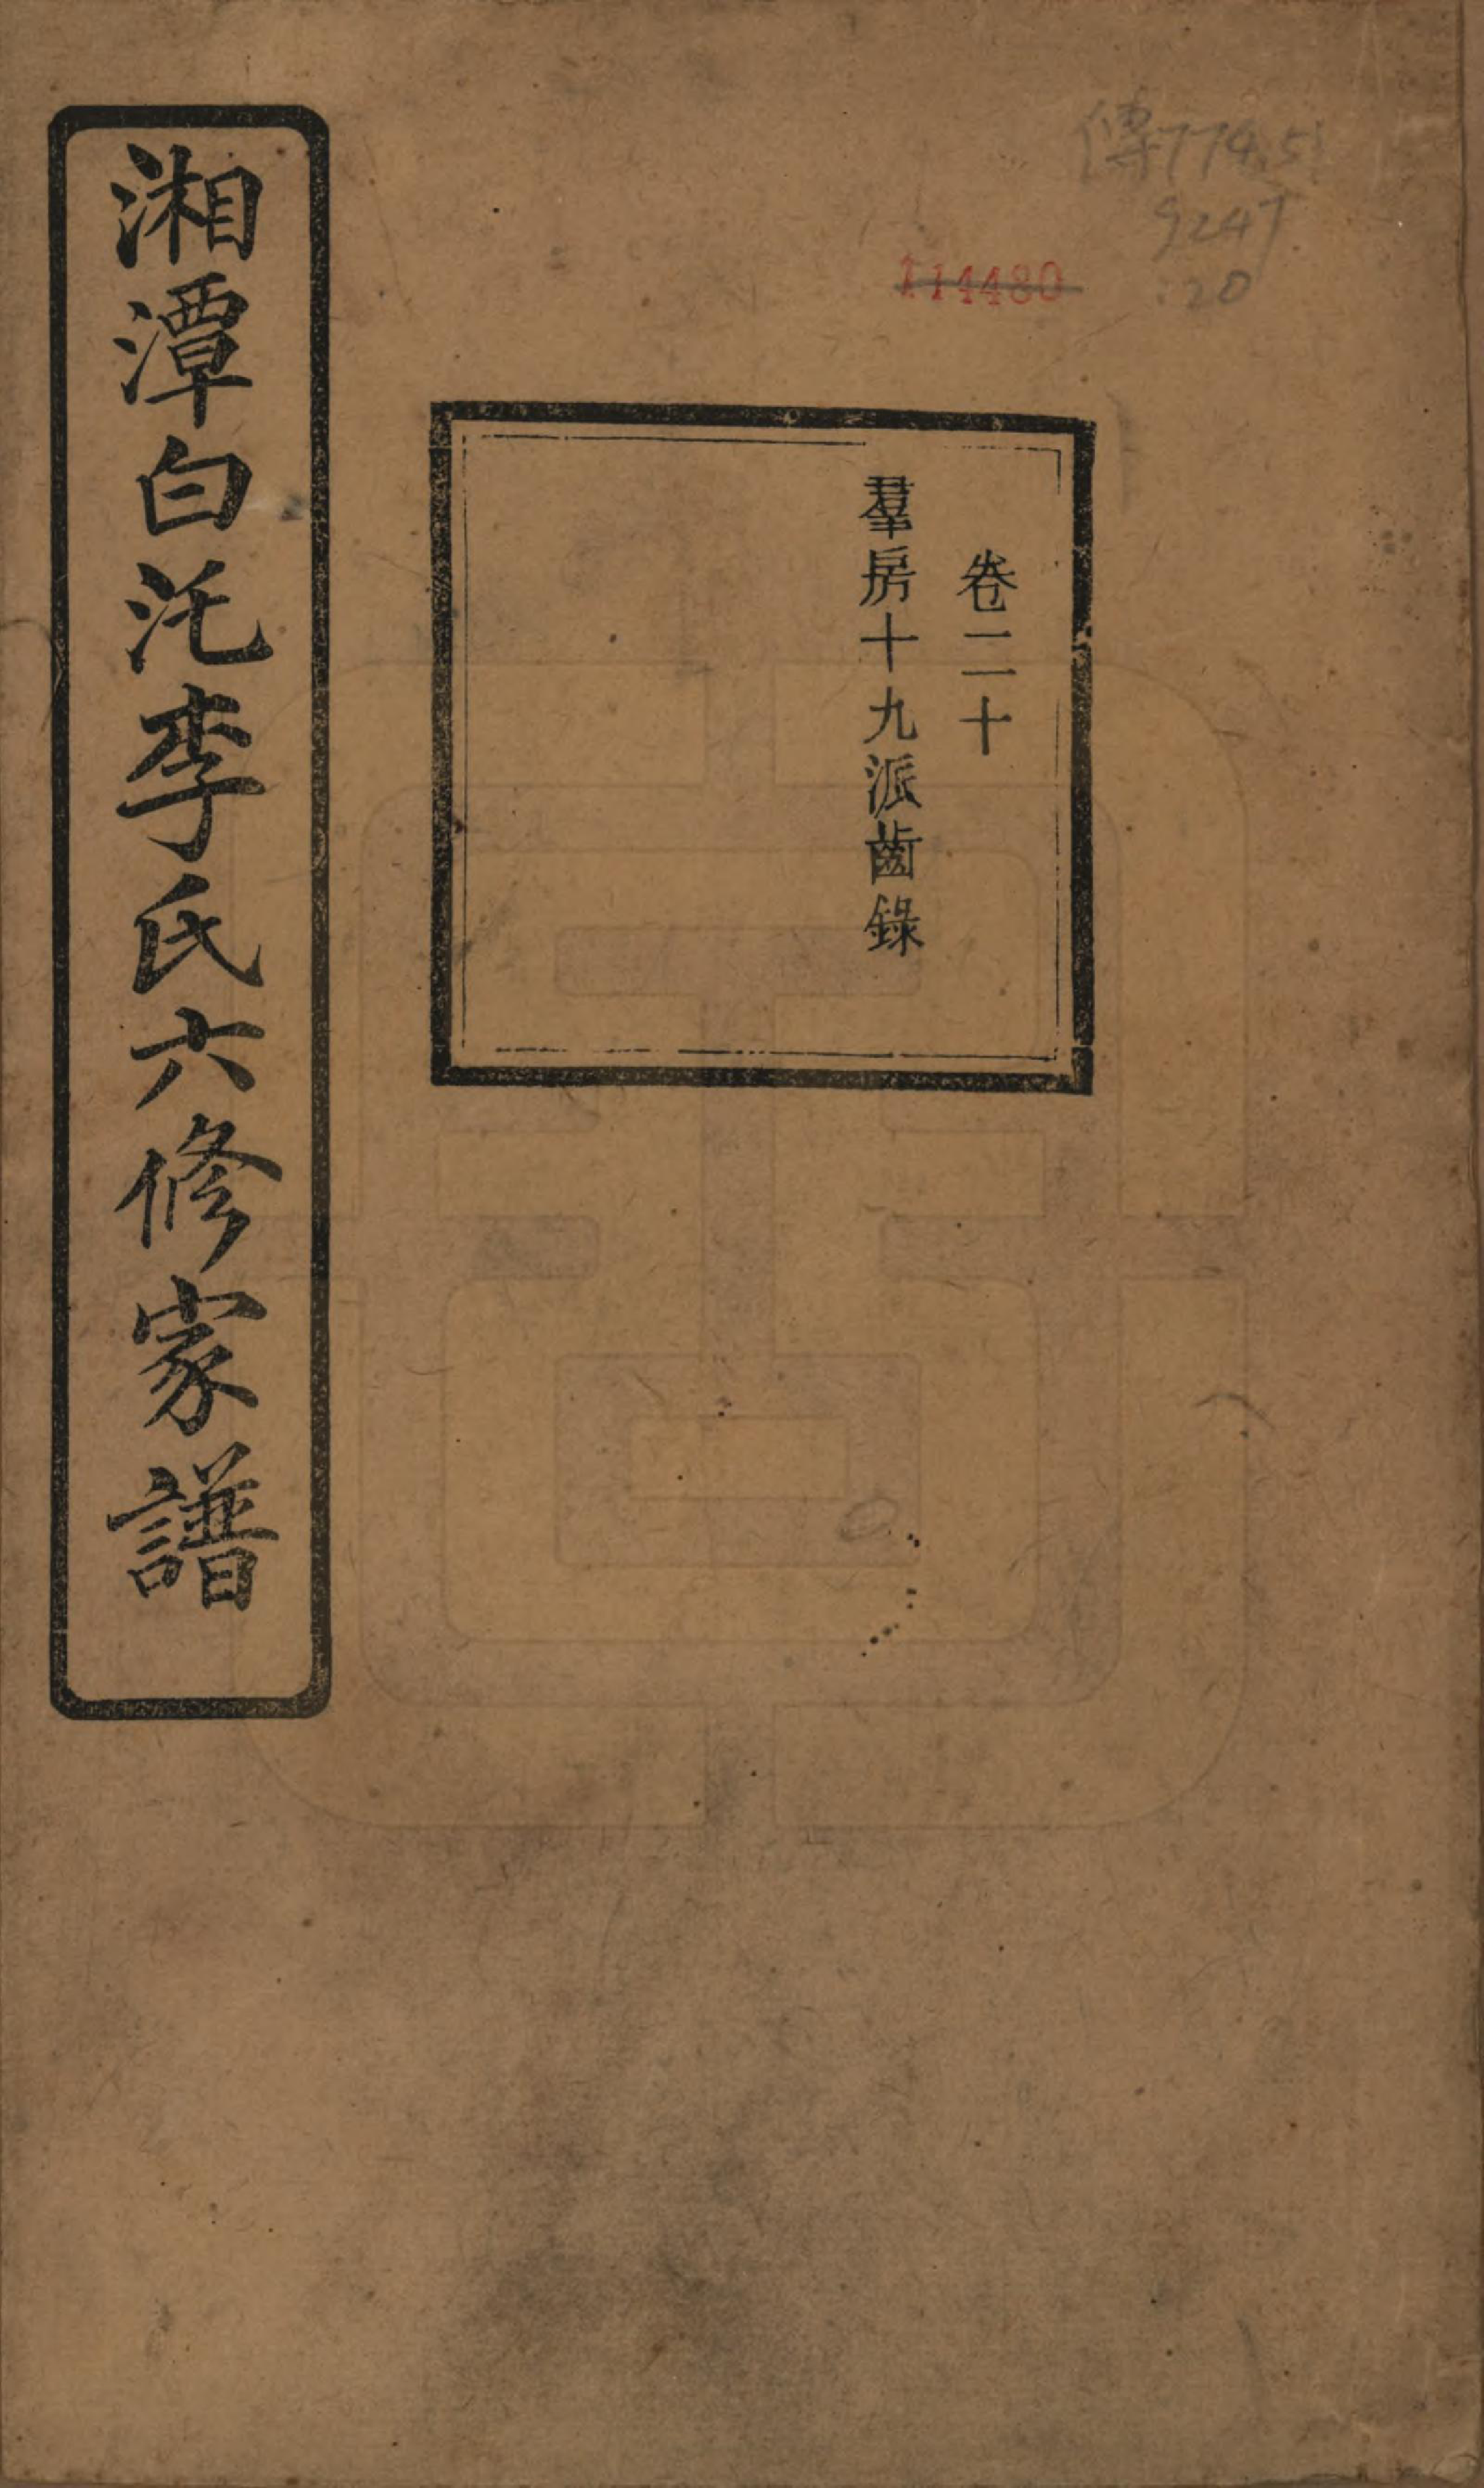 傳774.51
9247
:20
114480
卷二十
羣房十九派齒錄
湘潭白汑李氏六修家譜